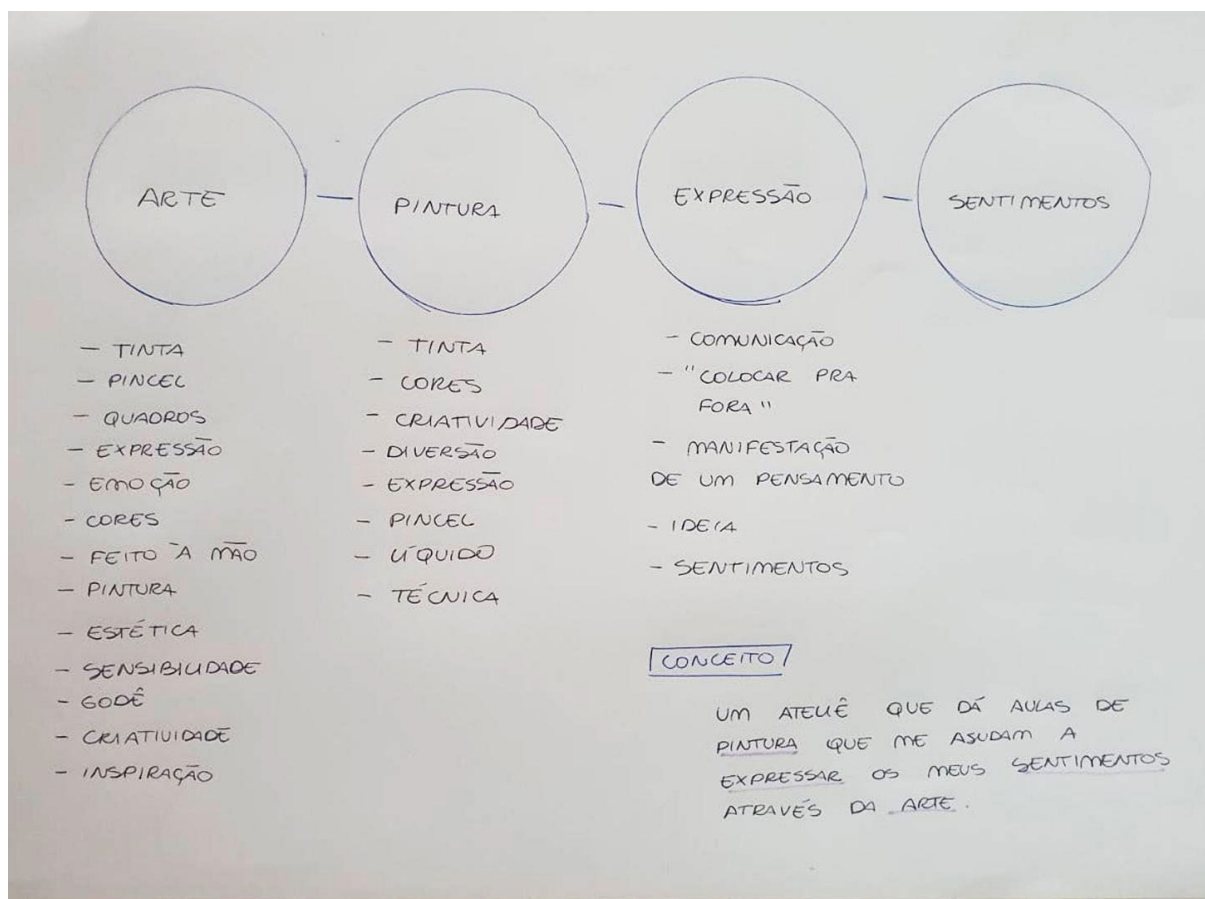 ARTE
PINTURA
EXPRESSÃO
SENTIMENTOS
- TINTA
- PINCEL
- QUADROS
- EXPRESSÃO
- EMOÇÃO
- CORES
- FEITO À MÃO
- PINTURA
- ESTÉTICA
- SENSIBILIDADE
- GODÊ
- CRIATIVIDADE
- INSPIRAÇÃO
- TINTA
- CORES
- CRIATIVIDADE
- DIVERSÃO
- EXPRESSÃO
- PINCEL
- LÍQUIDO
- TÉCNICA
- COMUNICAÇÃO
- "COLOCAR PRA
FORA"
- MANIFESTAÇÃO
DE UM PENSAMENTO
- IDEIA
- SENTIMENTOS
CONCEITO
UM ATELIÊ QUE DÁ AULAS DE
PINTURA QUE ME AJUDAM A
EXPRESSAR OS MEUS SENTIMENTOS
ATRAVÉS DA ARTE.